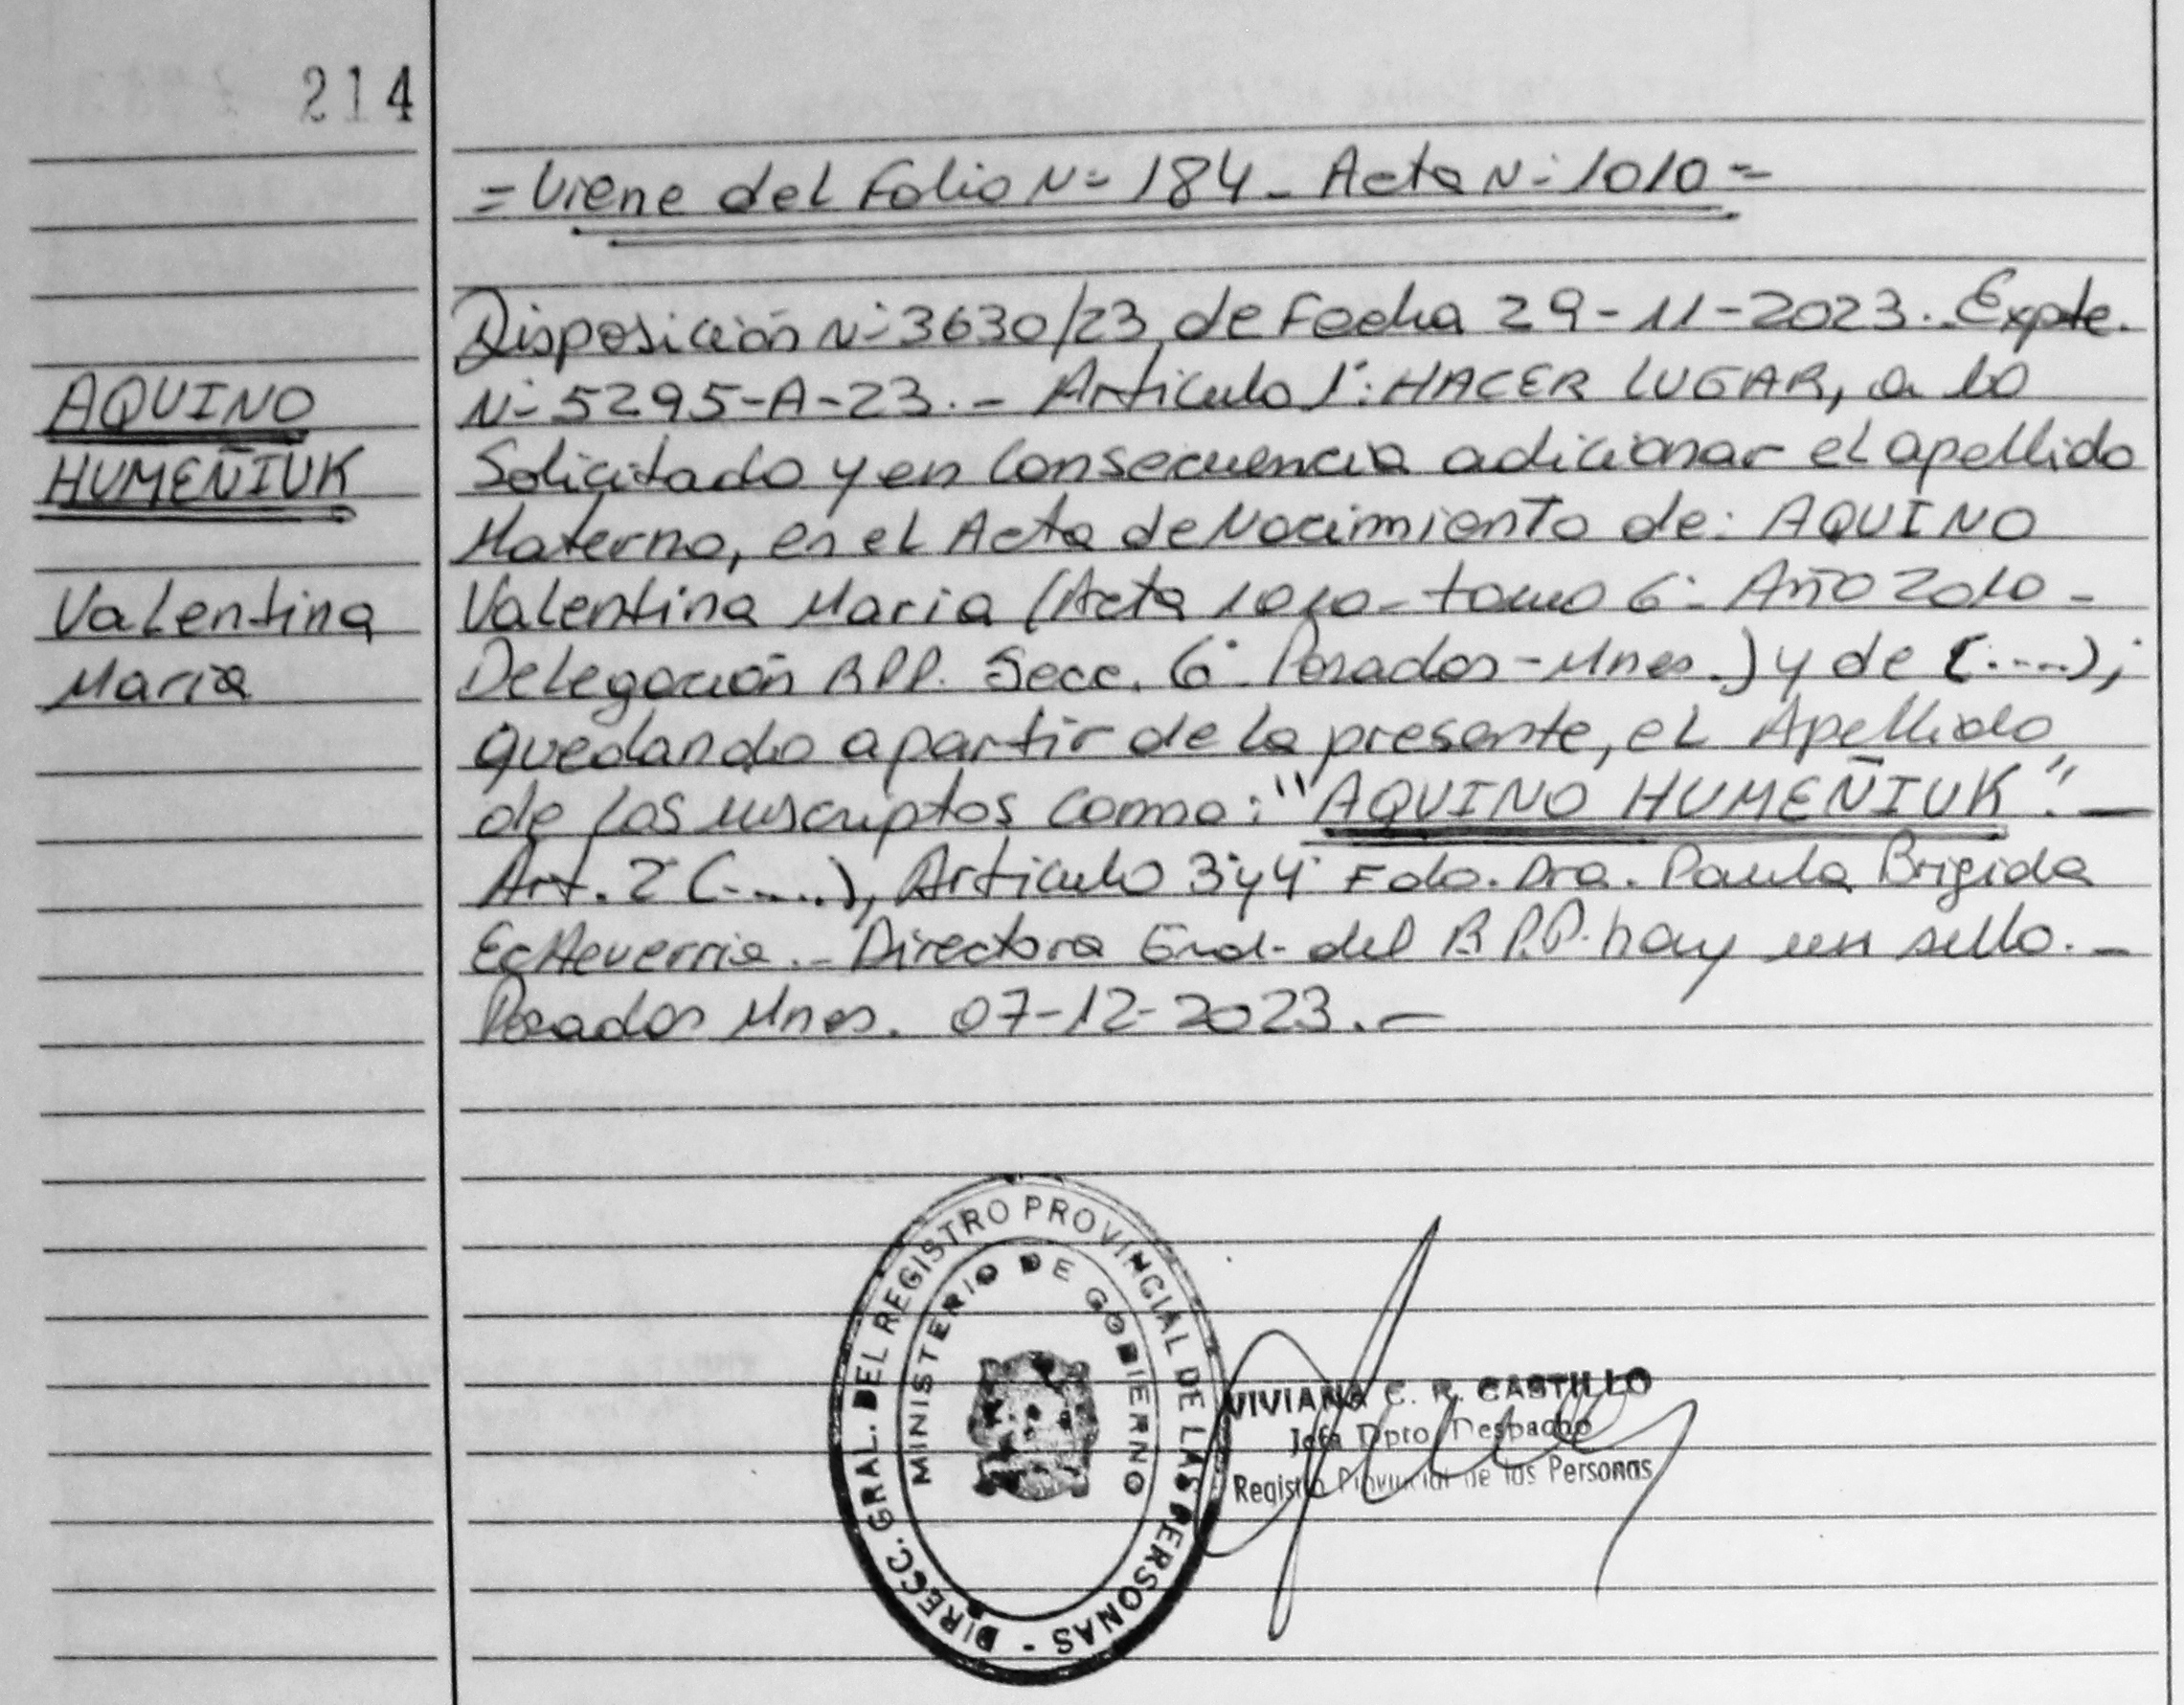 214
= Viene del Folio Nº 184 - Acta Nº 1010 =
Disposición Nº 3630/23, de Fecha 29-11-2023.. Expte.
Nº 5295-A-23.- Artículo 1º: HACER LUGAR, a lo
Solicitado y en Consecuencia adicionar el apellido
Materno, en el Acta de Nacimiento de: AQUINO
Valentina Maria (Acta 1010 - tomo 6º- Año 2010 -
Delegación RPP. Secc. 6º Posadas-Mnes.) y de (....);
quedando a partir de la presente, el Apellido
de los inscriptos como: "AQUINO HUMEÑIUK". —
Art. 2 (.....), Artículo 3º y 4º Fdo. Dra. Paula Brigida
EcHeverria.- Directora Gral. del R.P.P. hay un sello. -
Posadas Mnes. 07-12-2023. —
AQUINO
HUMEÑIUK
Valentina
Maria
DIRECC. GRAL. DEL REGISTRO PROVINCIAL DE LAS PERSONAS -
MINISTERIO DE GOBIERNO
VIVIANA C. R. CASTILLO
Jefa Dpto Despacho
Registro Provincial de las Personas